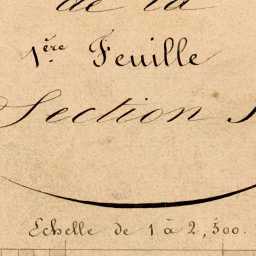 de la
1ère Feuille
Section
Echelle de 1 à 2,500.